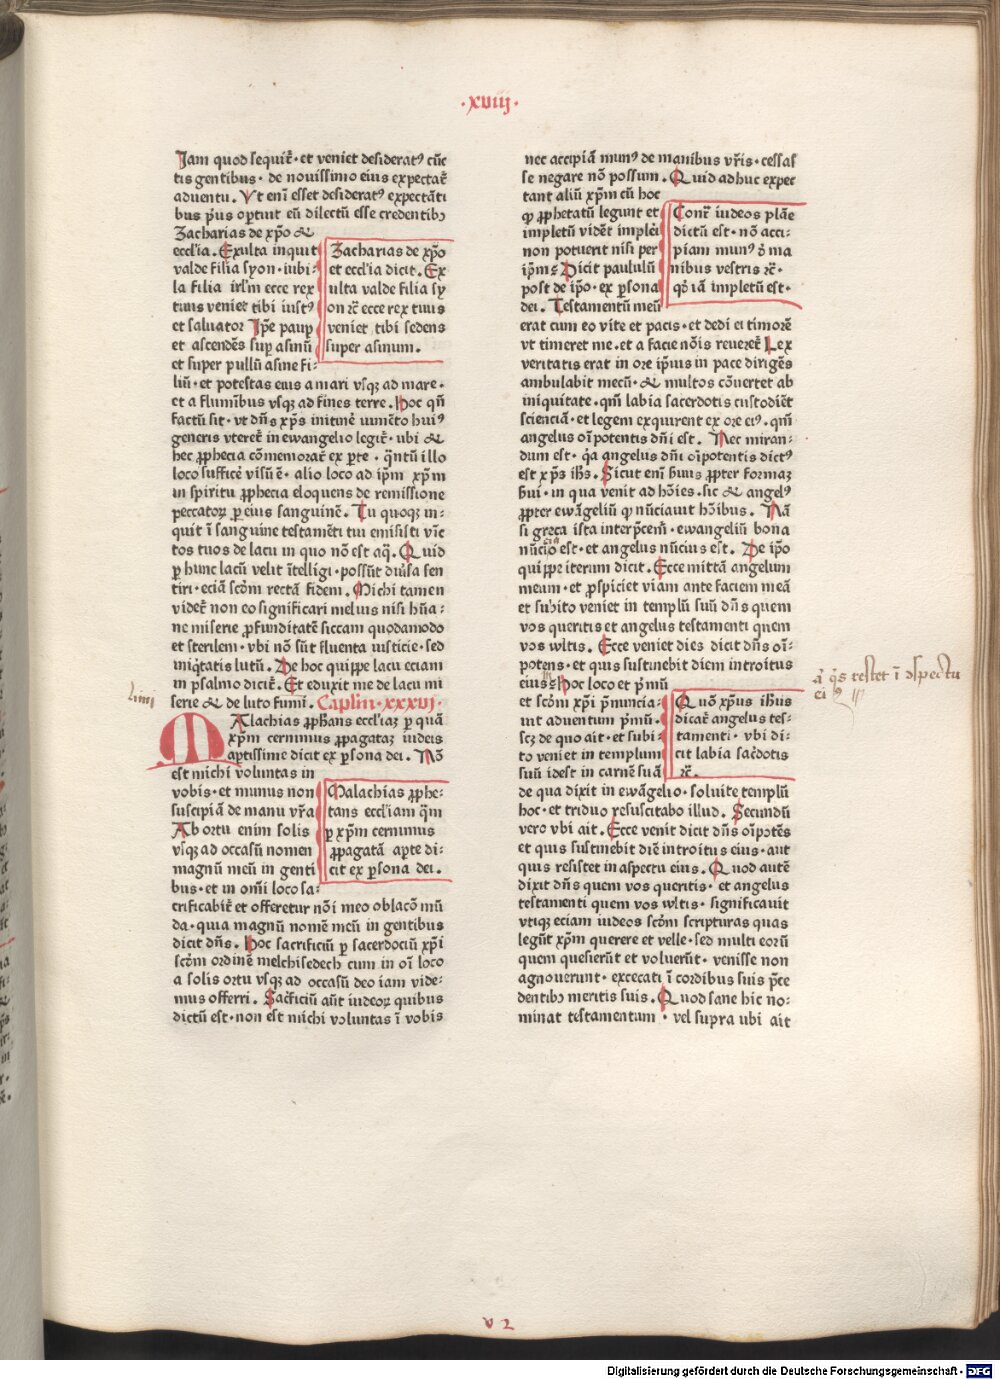 ·xviij·
Jam quod sequit᷑· et veniet desideratꝰ cūc
tis gentibus· de novissimo eius expectat᷑
aduentu. Vt enī esset desideratꝰ expectāti
bus pꝰus oꝑtuit eū dilectū esse credentibꝫ
Zacharias de xp̄o et
eccl̄ia. Exulta inquit
valde filia syon· iubi-
la filia irl̄m ecce rex
tuus veniet tibi iustꝰ
et saluator Ip̄e pauꝑ
et ascendēs suꝑ asinū
et super pullū asine fi-
Zacharias de xp̄o
et eccl̄ia dicit. Ex
ulta valde filia sy
on ⁊c̄ ecce rex tuus
veniet tibi sedens
super asinum.
liū· et potestas eius a mari vsqꝫ ad mare·
et a flumībus vsqꝫ ad fines terre. Hoc qn̄
factū sit· vt dn̄s xp̄s initinē iumēto huiꝰ
generis vteret᷑ in ewangelio legit᷑· ubi et
hec ꝓphecia cōmemorat᷑ ex ꝑte· qͥntū illo
loco sufficē visū ē· alio loco ad ip̄m xp̄m
in spiritu ꝓphecia eloquens de remissione
peccatoꝝ ꝑ eius sanguinē. Tu quoqꝫ in-
quit ī sanguine testamēti tui emisisti vīc
tos tuos de lacu in quo nō est aq̄. Quid
ꝑ hunc lacū velit ītelligi· possūt diu̾sa sen
tiri· eciā scd̄m rectā fidem. Michi tamen
videt᷑ non eo significari melius nisi hūa-
ne miserie ꝓfunditatē siccam quodamodo
et sterilem· vbi nō sūt fluenta iusticie· sed
iniqͥtatis lutū. De hoc quippe lacu eciam
in psalmo dicit᷑. Et eduxit me de lacu mi
limi
serie et de luto fumī. Caplm· xxxvj·
MAlachias ꝓphans eccl̄iaꝫ ꝑ quā
xp̄m cernimus ꝓpagataꝫ iudeis
aptissime dicit ex ꝑsona dei. Nō
est michi voluntas in
vobis· et munus non
suscipiā de manu vr̄a
Ab ortu enim solis
vsqꝫ ad occasū nomen
magnū meū in genti
bus· et in om̄i loco sa-
Malachias ꝓphe-
tans eccl̄iam qͥm
ꝑ xp̄m cernimus
ꝓpagatā aꝑte di-
cit ex ꝑsona dei.
crificabit᷑ et offeretur nōi meo oblacō mū
da· quia magnū nomē meū in gentibus
dicit dn̄s. Hoc sacrificiū ꝑ sacerdociū xp̄i
scd̄m ordinē melchisedech cum in oī loco
a solis ortu vsqꝫ ad occasū deo iam vide-
mus offerri. Sac̾ficiū aūt iudeoꝝ quibus
dictū est· non est michi voluntas ī vobis
nec accipiā munꝰ de manibus vr̄is· cessas
se negare nō possum. Quid adhuc expec
tant aliū xp̄m cū hoc
ꝙ ꝓphetatū legunt et
impletū vidēt implēi
non potuerit nisi per
ip̄m. Dicit paululū
post de ip̄o· ex ꝑsona
dei. Testamentū meū
Contr̄ iudeos plāe
dictū est· nō acci-
piam munꝰ d̾ ma
nibus vestris ⁊c̄·
qd̾ iā impletū est·
erat cum eo vite et pacis· et dedi ei timorē
vt timeret me· et a facie nōis reueret᷑ Lex
veritatis erat in ore ip̄ius in pace dirigēs
ambulabit mecū· et multos cōuertet ab
iniquitate· qm̄ labia sacerdotis custodiēt
scienciā· et legem exquirent ex ore eiꝰ· qm̄
angelus oīpotentis dn̄i est. Nec miran-
dum est· qͥa angelus dn̄i oīpotentis dictꝰ
est xp̄s ih̄s. Sicut enī ẜuus ꝓpter formaꝫ
ẜui· in qua venit ad hōies· sic et angelꝰ
ꝓpter ewāgeliū ꝙ nūciauit hōibus. Nā
si greca ista interp̄cem᷑· ewangeliū bona
nūcio est· et angelus nūcius est. De ip̄o
quippe iterum dicit. Ecce mittā angelum
meum· et ꝓspiciet viam ante faciem meā
et subito veniet in templū suū dn̄s quem
vos queritis et angelus testamenti quem
vos wltis. Ecce veniet dies dicit dn̄s oī-
potens· et quis sustinebit diem introitus
eius. Hoc loco et pͥmū
a͛ q͛s restet ī ↄspectu
eiꝰ
et scd̄m xp̄i p̄nuncia-
uit aduentum pͥmū·
scꝫ de quo ait· et subi-
to veniet in templum
suū idest in carnē suā
Quō xp̄us ih̄us
dicat᷑ angelus tes-
tamenti· vbi di-
cit labia sac̾dotis
⁊c̄·
de qua dixit in ewāgelio· soluite templū
hoc· et triduo resuscitabo illud. Secundū
vero vbi ait. Ecce venit dicit dn̄s oīpotēs
et quis sustinebit diē introitus eius· aut
quis resistet in aspectu eius. Quod autē
dixit dn̄s quem vos queritis· et angelus
testamenti quem vos wltis· significauit
vtiqꝫ eciam iudeos scd̄m scripturas quas
legūt xp̄m querere et velle· sed multi eorū
quem quesierūt et voluerūt· venisse non
agnouerunt· excecati ī cordibus suis p̄ce
dentibꝫ meritis suis. Quod sane hic no-
minat testamentum· vel supra ubi ait
v 2
Digitalisierung gefördert durch die Deutsche Forschungsgemeinschaft - DFG